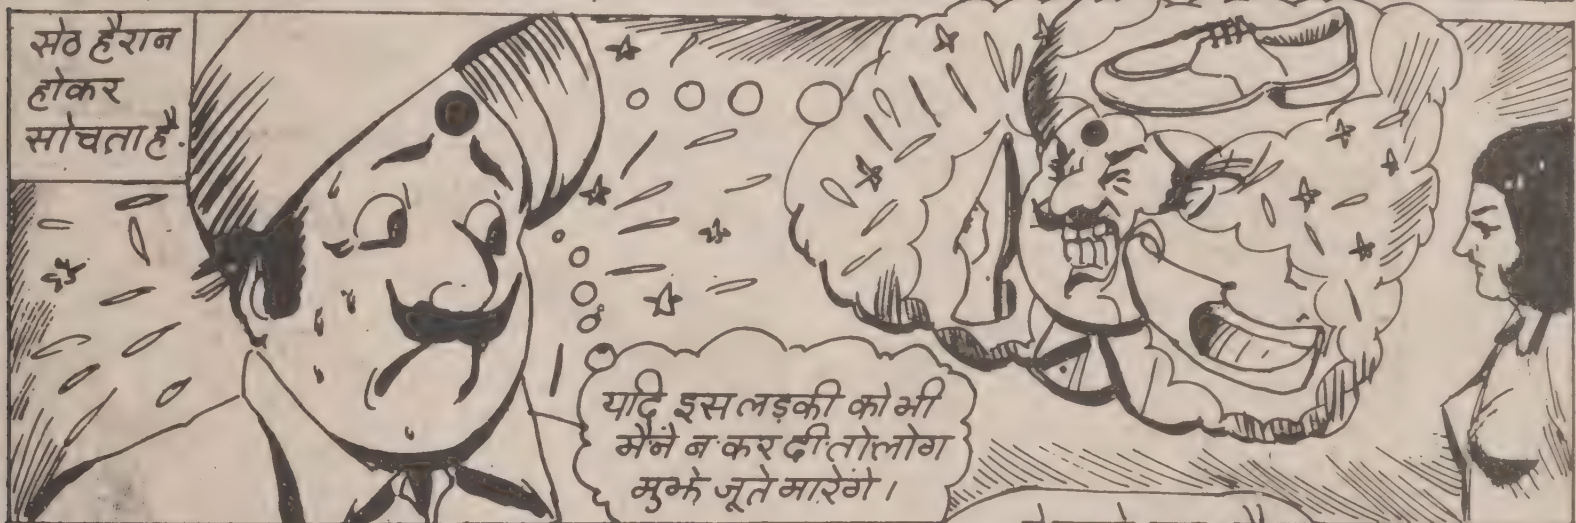 सेठ हैरान
होकर
सोचता है.
यदि इस लड़की को भी
मैंने न कर दी तो लोग
मुझे जूते मारेंगे।